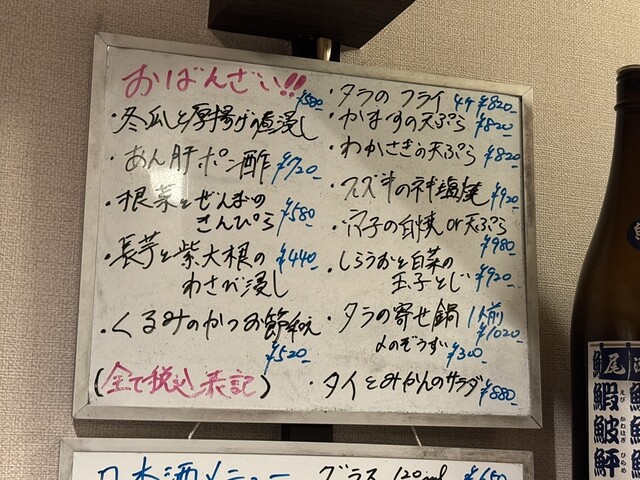 おばんざい!!
・冬瓜と厚揚げの煮浸し ¥580
・あん肝ポン酢 ¥720-
・根菜とぜんまいの
きんぴら ¥580
・長芋と紫大根の ¥440-
わさび浸し
・くるみのかつお節和え
¥520-
(全て税込表記)
・タラのフライ 4ケ ¥820-
・かますの天ぷら ¥820-
・わかさぎの天ぷら ¥820
・スズキの塩焼 ¥920
・穴子の白焼 or 天ぷら
¥980
・しらうおと白菜の
玉子とじ ¥920-
・タラの寄せ鍋 1人前
¥1020-
〆のぞうすい ¥300-
・タイとみかんのサラダ ¥880-
日本酒メニュー グラス 120ml ¥650
尾
鰕 えび
鮍 かわはぎ
鮃 ひらめ